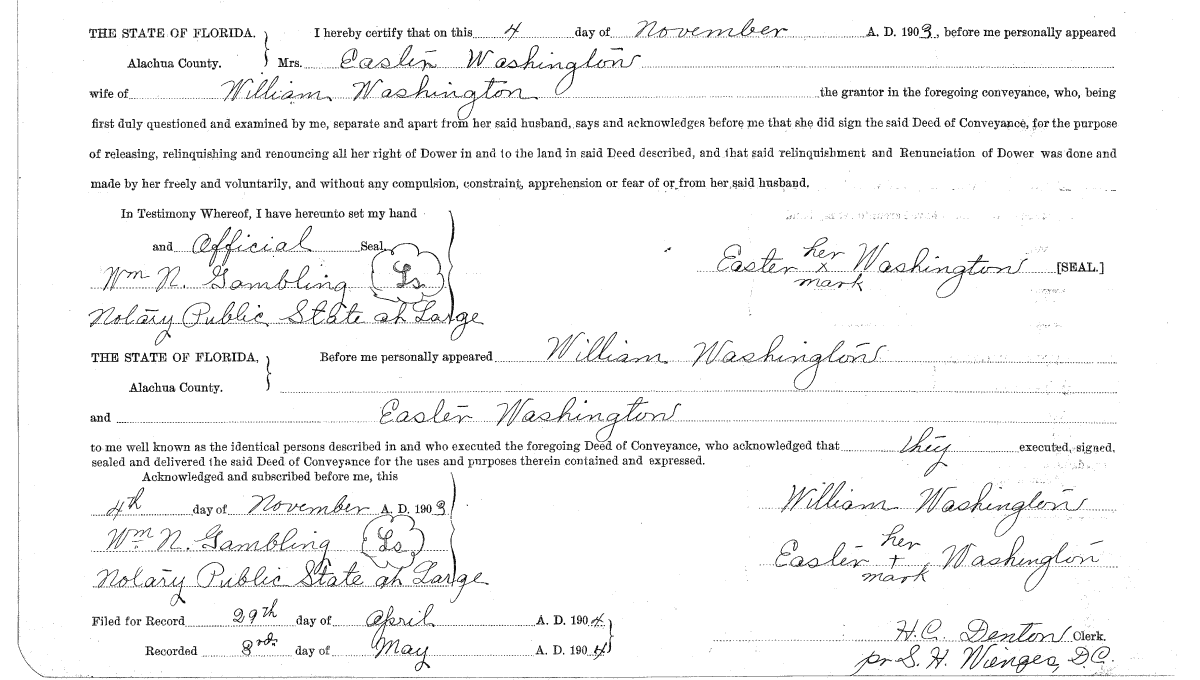 THE STATE OF FLORIDA. } I hereby certify that on this 4 day of November A. D. 1903, before me personally appeared
Alachua County. } Mrs. Easter Washington
wife of William Washington the grantor in the foregoing conveyance, who, being
first duly questioned and examined by me, separate and apart from her said husband, says and acknowledges before me that she did sign the said Deed of Conveyance, for the purpose
of releasing, relinquishing and renouncing all her right of Dower in and to the land in said Deed described, and that said relinquishment and Renunciation of Dower was done and
made by her freely and voluntarily, and without any compulsion, constraint, apprehension or fear of or from her said husband.
In Testimony Whereof, I have hereunto set my hand
and Official Seal.
Wm N. Gambling Ls
Notary Public State at Large
her
Easter x Washington [SEAL.]
mark
THE STATE OF FLORIDA, } Before me personally appeared William Washington
Alachua County.
and Easter Washington
to me well known as the identical persons described in and who executed the foregoing Deed of Conveyance, who acknowledged that they executed, signed,
sealed and delivered the said Deed of Conveyance for the uses and purposes therein contained and expressed.
Acknowledged and subscribed before me, this
4th day of November A. D. 1903
Wm N. Gambling Ls
Notary Public State at Large
William Washington
her
Easter + Washington
mark
Filed for Record 29th day of April A. D. 1904
Recorded 3rd. day of May A. D. 1904
H.C. Denton Clerk.
pr S. H. Wienges, D.C.